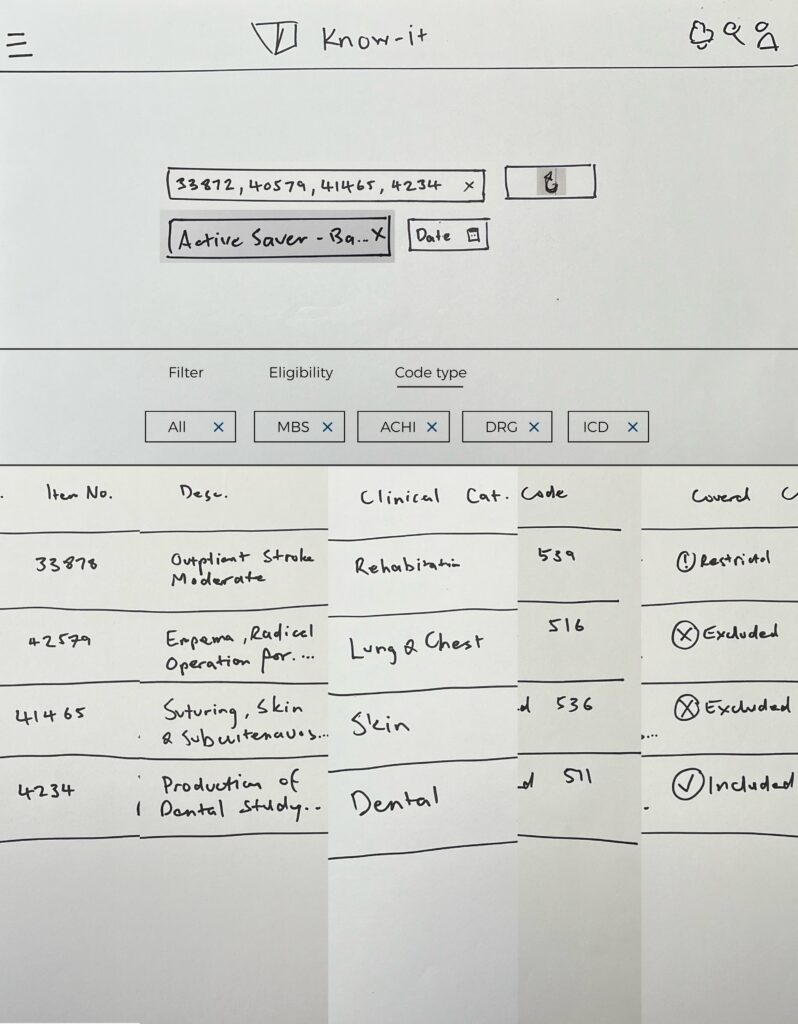 Know-it
33872, 40579, 41465, 4234 ×
Active Saver - Ba... X
Date
Filter Eligibility Code type
All × MBS × ACHI × DRG × ICD ×
Item No. Desc. Clinical Cat. Code Coverd C
33878 Outptient Stroke Rehabitation 539 Restrictd
Moderate
42579 Empema, Radical Lung & Chest 516 Excluded
Operation for....
41465 Suturing, Skin Skin d 536 Excluded
& Subcutenavos...
4234 Production of Dental d 511 Included
Dental Study...